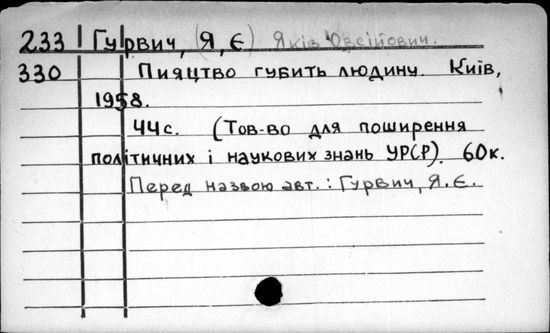 233 Гурвич, (Я,Є) Яків Овсійович.
330 Пияцтво губить людину. Київ,
1958.
44с. (Тов-во для поширення
політичних і наукових знань УРСР). 60к.
Перед назвою авт.: Гурвич, Я.Є.